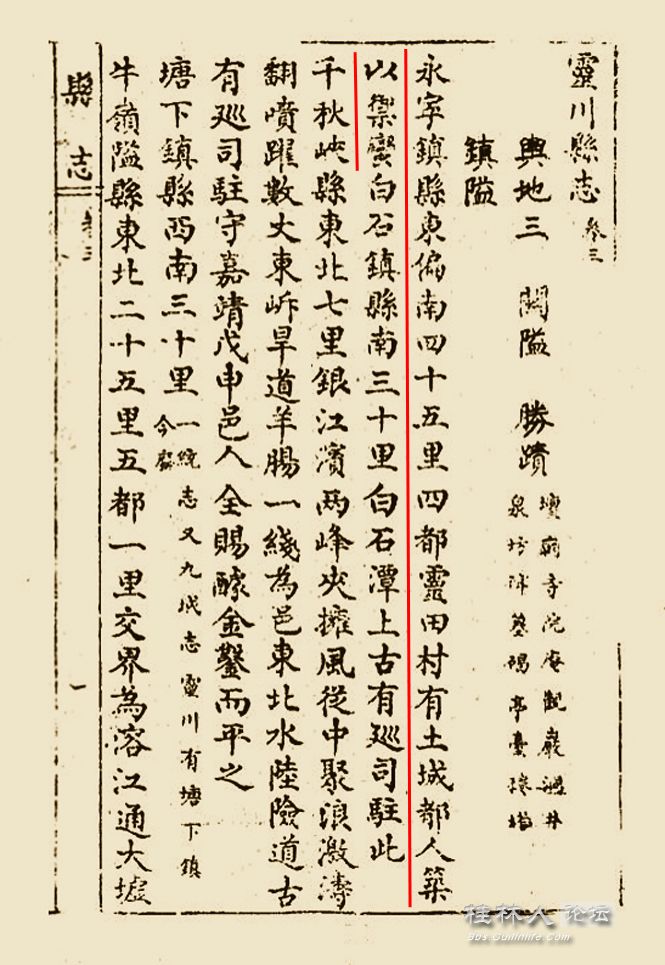 靈川縣志 卷三
輿地三 關隘 勝蹟 壇廟寺院庵觀巖
泉坊 墓碣亭臺
鎮隘
永寧鎮縣東偏南四十五里四都靈田村有土城都人築
以禦蠻白石鎮縣南三十里白石潭上古有廵司駐此
千秋峽縣東北七里銀江濱兩峰夾擁風從中聚浪激濤
翻噴躍數丈東岸旱道羊腸一綫為邑東北水陸險道古
有廵司駐守嘉靖戊申邑人全賜醵金鑿而平之
塘下鎮縣西南三十里 一統志又九域志靈川有塘下鎮
今廢
牛嶺隘縣東北二十五里五都一里交界為溶江通大墟
縣志 卷三 一
桂林人论坛
bbs.Guilinlife.com